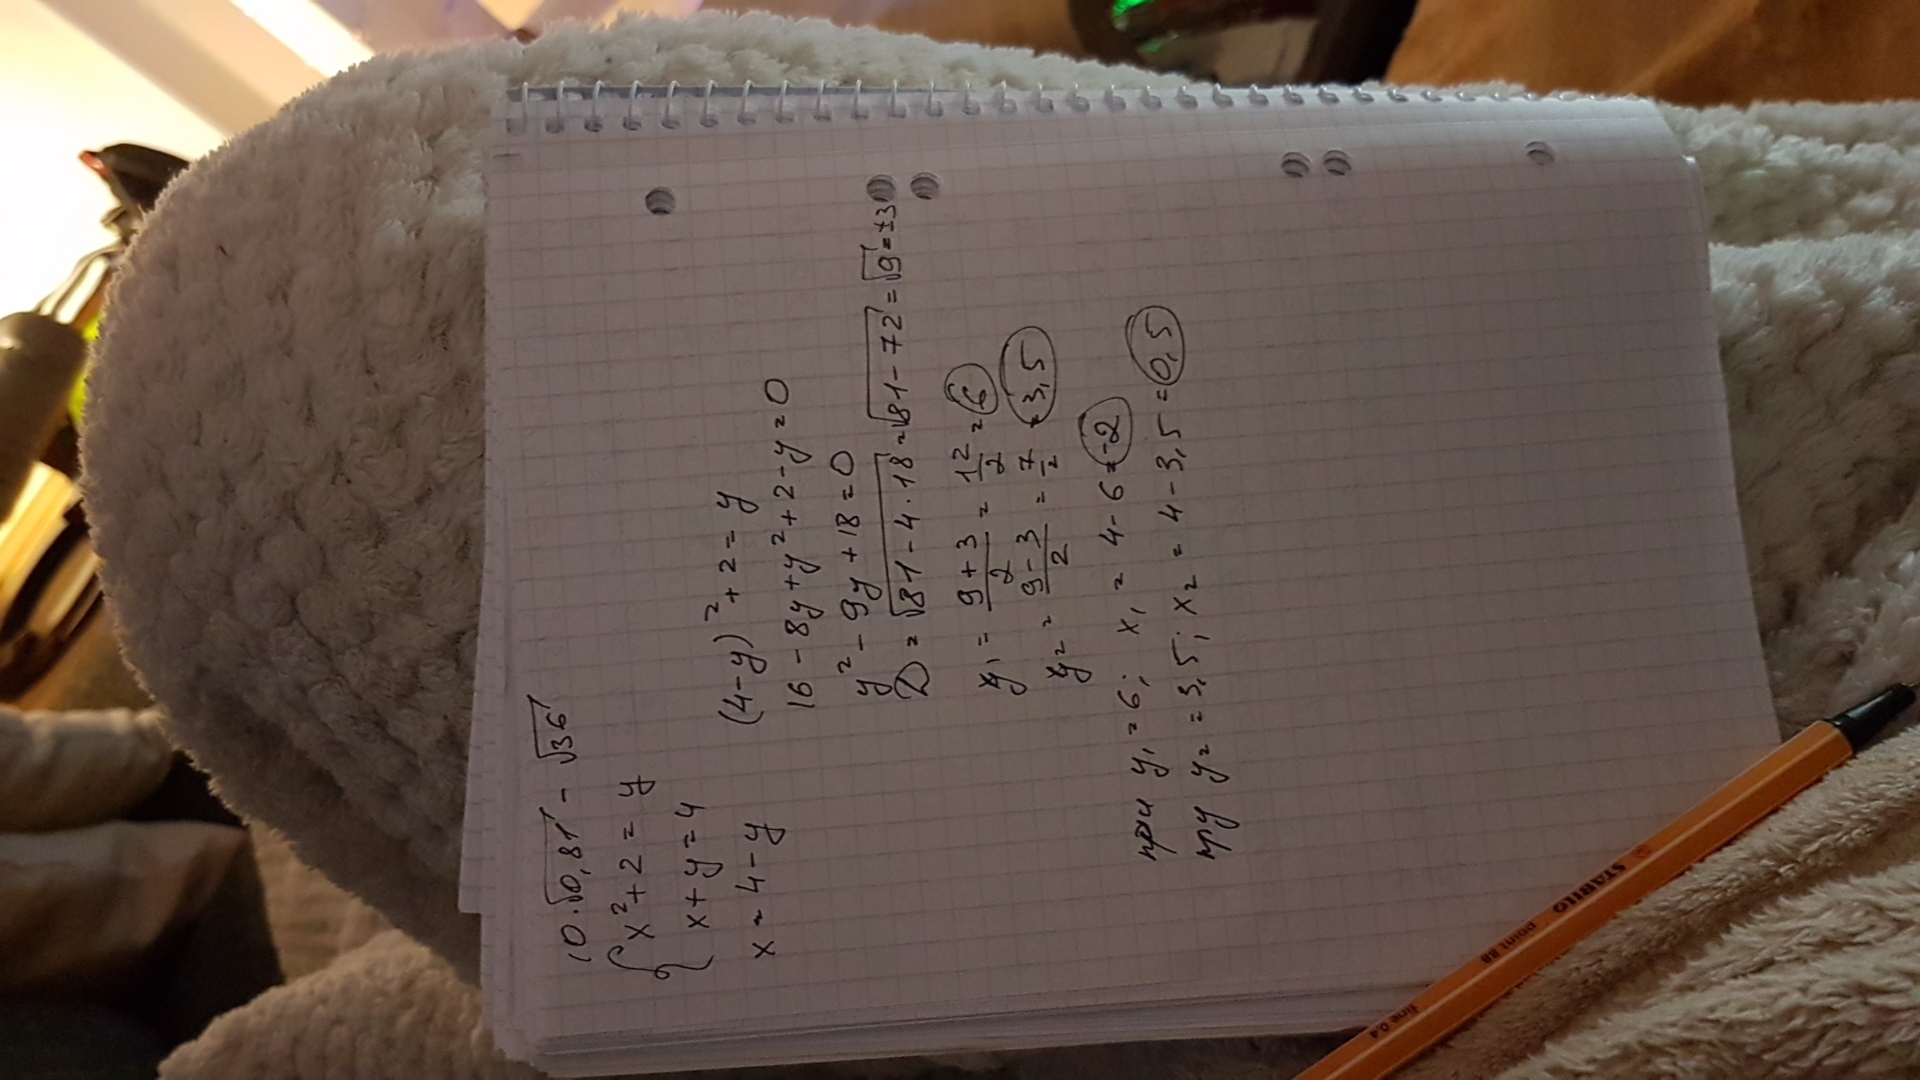 10·√0,81 - √36
{ x² + 2 = y
x + y = 4
x = 4 - y
(4-y)² + 2 = y
16 - 8y + y² + 2 - y = 0
y² - 9y + 18 = 0
D = √81 - 4·18 = √81 - 72 = √9 = ±3
y₁ = (9+3)/2 = 12/2 = 6
y₂ = (9-3)/2 = 7/2 = 3,5
при y₁ = 6; x₁ = 4 - 6 = -2
при y₂ = 3,5; x₂ = 4 - 3,5 = 0,5
STABILO point 88 fine 0.4